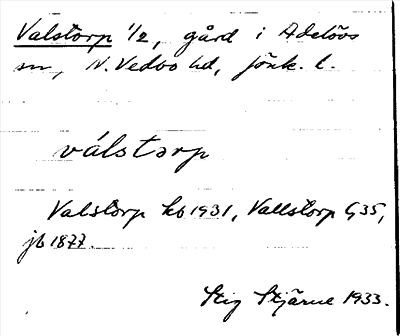 Valstorp 1/2, gård i Adelövs
sn, N. Vedbo hd, Jönk. l.
válstorp
Valstorp kb 1931, Vallstorp G35,
jb 1877.
Stig Stjärne 1933.